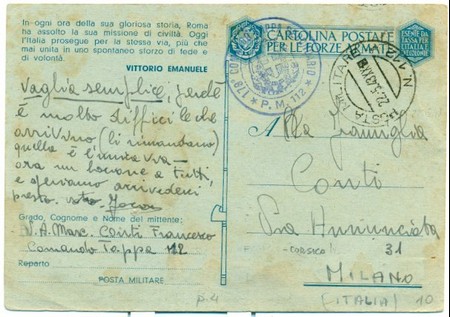 In ogni ora della sua gloriosa storia, Roma
ha assolto la sua missione di civiltà. Oggi
l'Italia prosegue per la stessa via, più che
mai unita in uno spontaneo sforzo di fede e
di volontà.
VITTORIO EMANUELE
Vaglia semplice, perché
è molto difficile che
arrivino (li rimandano)
quella è l'unica via
ora un bacione a tutti
e speriamo arrivederci
presto. vostro
Grado, Cognome e Nome del mittente:
Conti Francesco
Comando Tappa 112
Reparto
POSTA MILITARE
CARTOLINA POSTALE
PER LE FORZE ARMATE
ESENTE DA
TASSA PER
L'ITALIA E
P. M. 112
POSTA MILITARE N. 112
22.5.43.XXI
Alla Famiglia
Conti
Via Annunciata
31
(CORSICA)
MILANO
(ITALIA)
10
p.4